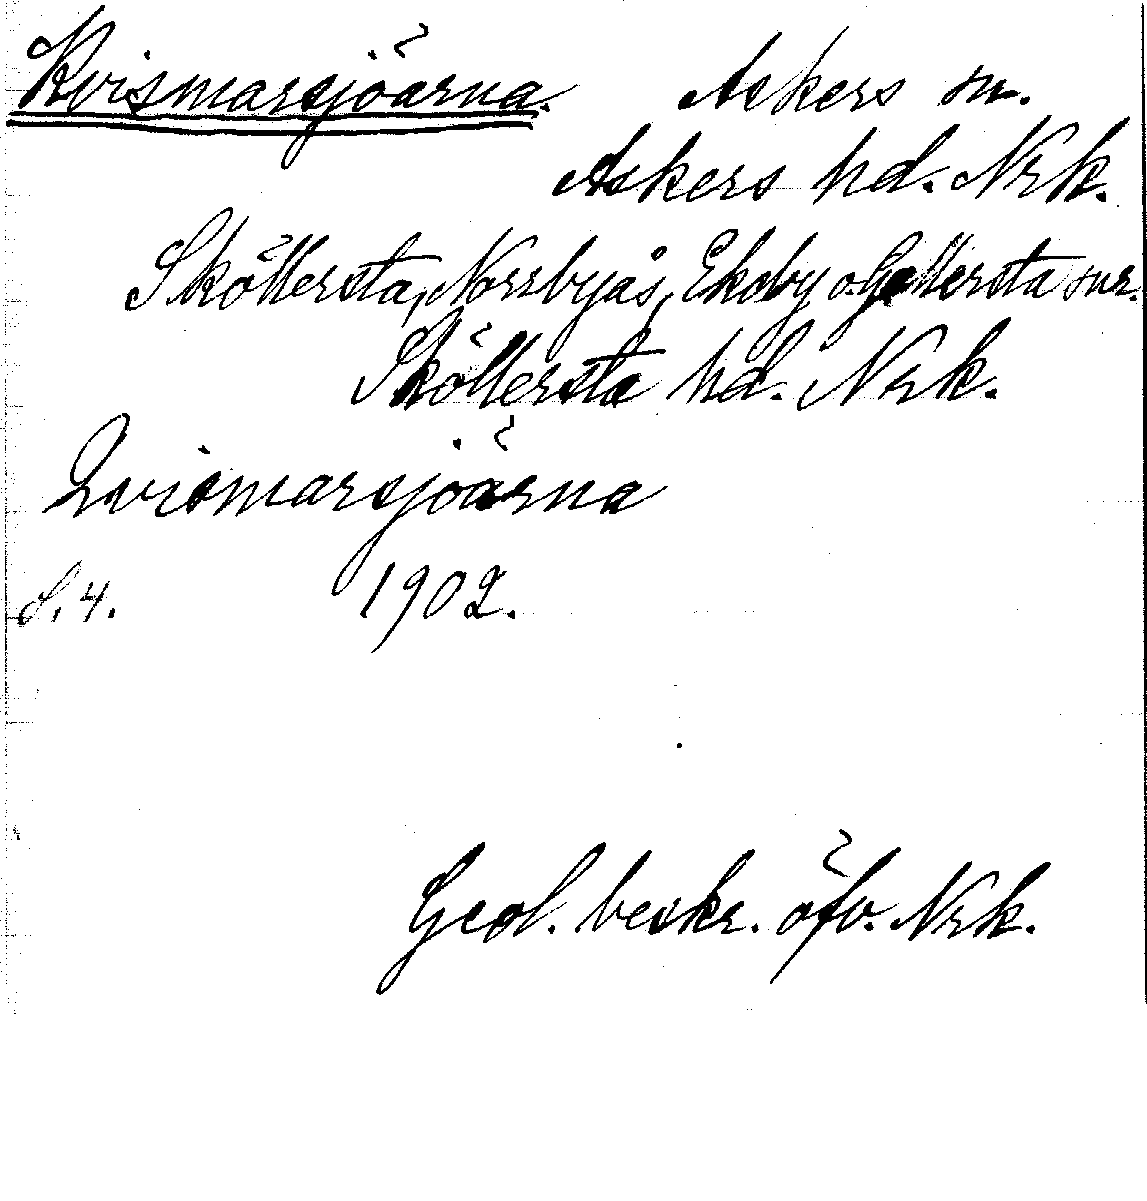 Kvismarsjöarna. Askers sn.
Askers hd. Nrk.
Sköllersta, Norrbyås, Ekeby o. Gällersta snr.
Sköllersta hd. Nrk.
Qvismarsjöarna
S. 4. 1902.
Geol. beskr. öfv. Nrk.